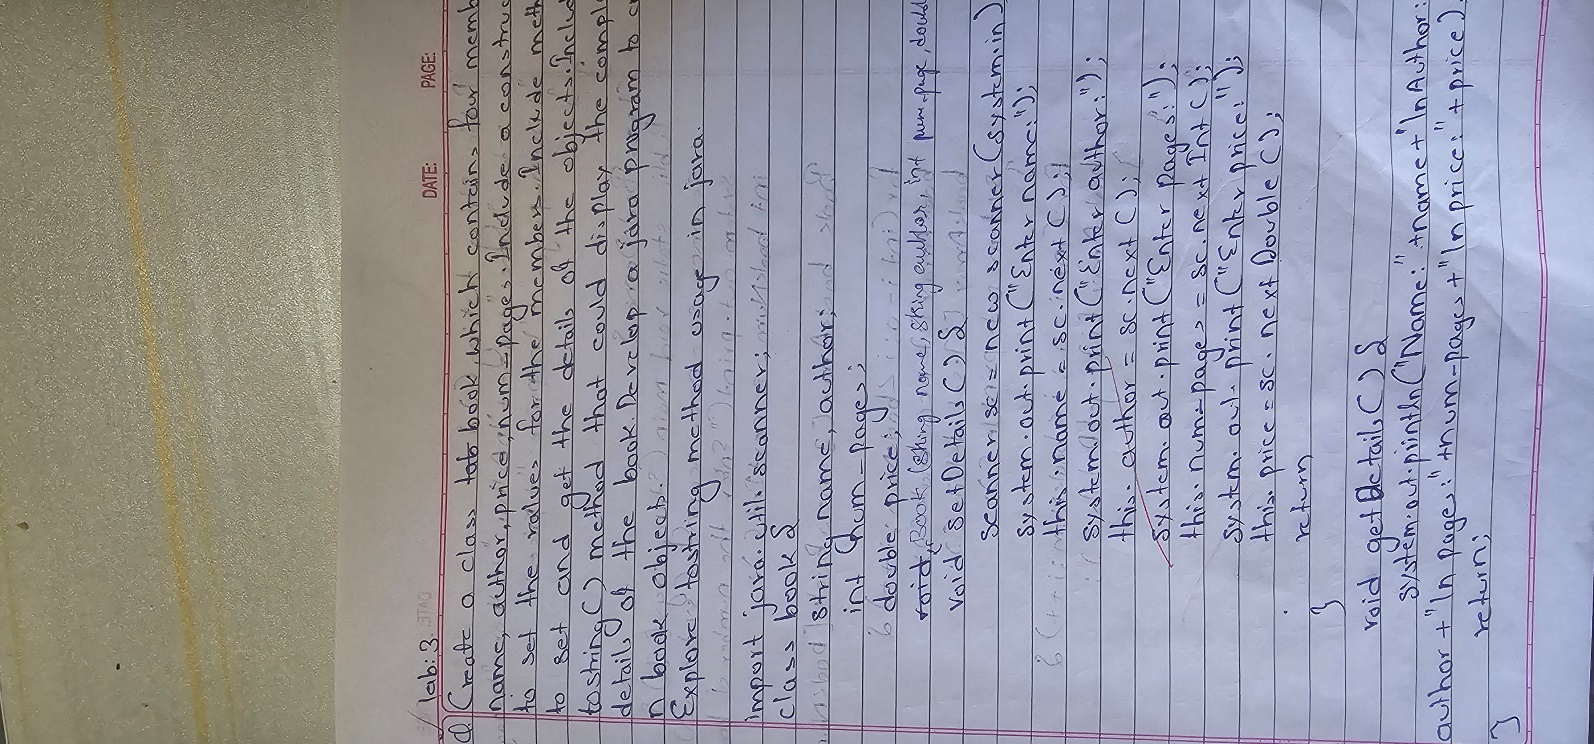 DATE: PAGE:
lab:3
Q) Create a class tab book which contains four memb
name, author, price, num-pages. Include a construc
to set the values for the members. Include meth
to set and get the details of the objects. Includ
tostring() method that could display the compl
details of the book. Develop a java program to cr
n book objects.
Explore tostring method usage in java.
import java.util.scanner;
class book {
String name, author;
int num-pages;
double price;
void Book (String name, string author, int num-page, doubl
void setDetails() {
scanner sc = new scanner(system.in)
system.out.print("Enter name:");
this.name = sc.next();
system.out.print("Enter author:");
this.author = sc.next();
system.out.print("Enter pages:");
this.num-pages = sc.nextInt();
system.out.print("Enter price:");
this.price = sc.nextDouble();
return
}
void getDetails() {
system.out.println("Name:"+name+"\nAuthor:
author+"\n pages:"+num-pages+"\nprice:"+price)
return;
}